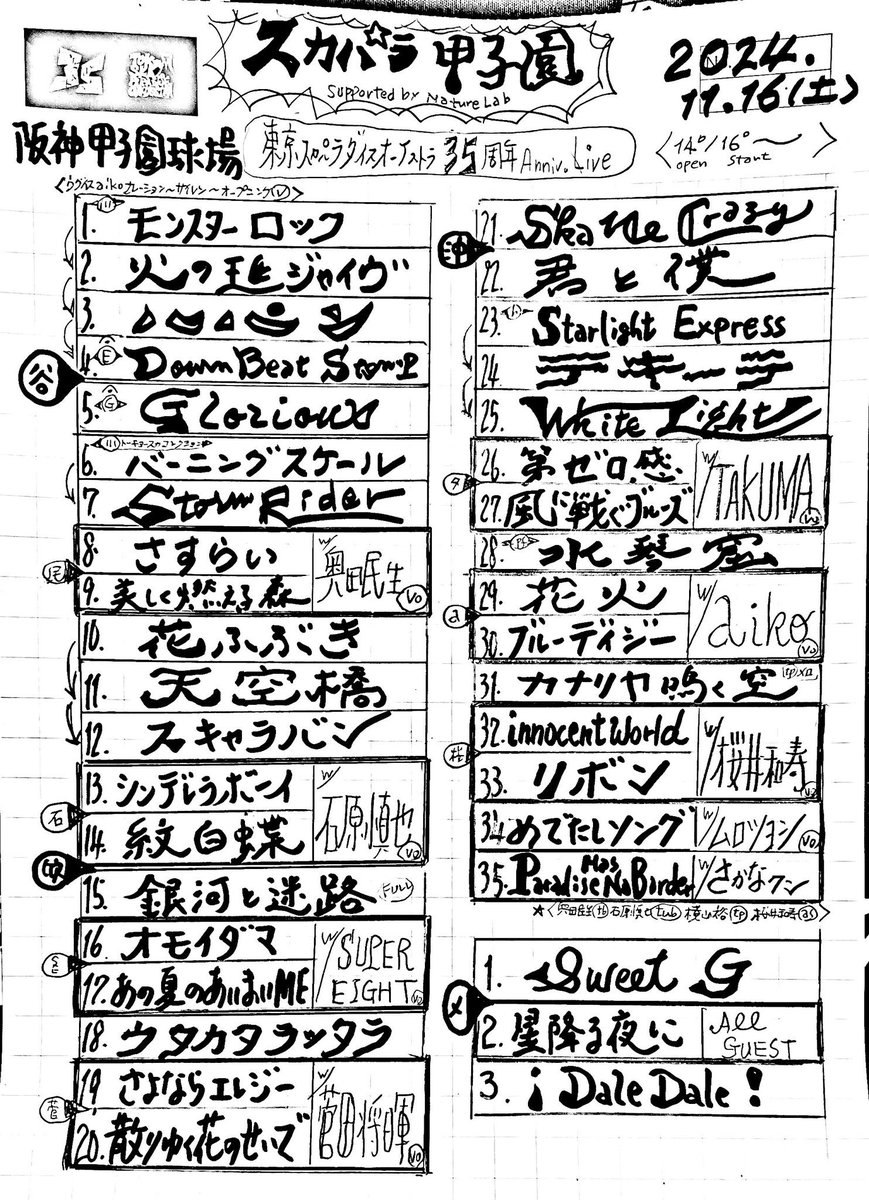 スカパラ甲子園
Supported by Nature Lab
2024.
11.16(土)
阪神甲子園球場
東京スカパラダイスオーケストラ 35周年 Anniv. Live
14°/16°〜
open start
1. モンスターロック
2. 火の玉ジャイヴ
4. Down Beat Stomp
谷
5. Glorious
6. バーニングスケール
7. Storm Rider
8. さすらい
9. 美しく燃える森
w/奥田民生 Vo
10. 花ふぶき
11. 天空橋
12. スキャラバン
13. シンデレラボーイ
14. 紋白蝶
石
w/石原慎也 Vo
15. 銀河と迷路 FULL
16. オモイダマ
17. あの夏のあいまいME
w/SUPER EIGHT
18. ウタカタラッタラ
19 さよならエレジー
20. 散りゆく花のせいで
菅
w/菅田将暉 Vo
21. Ska Me Crazy
沖
22. 君と僕
23. Starlight Express
25. White Light
26. 第ゼロ感
27. 風に戦ぐブルーズ
w/TAKUMA Vo
28. 水琴窟
29. 花火
30. ブルーデイジー
a
w/aiko Vo
31. カナリヤ鳴く空
32. innocent world
33. リボン
w/桜井和寿
34 めでたしソング w/ムロツヨシ Vo
35. Paradise Has No Border w/さかなクン
1. Sweet G
メ
2. 星降る夜に All GUEST
3. ¡Dale Dale!